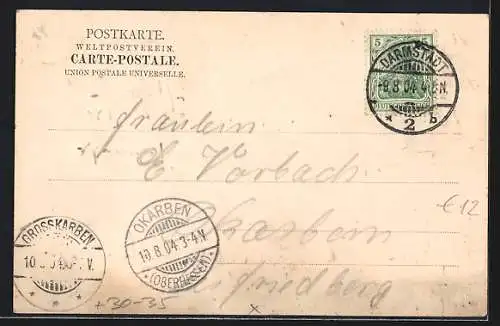 POSTKARTE.
WELTPOSTVEREIN.
CARTE-POSTALE.
UNION POSTALE UNIVERSELLE.
5 5
DARMSTADT
8.04.
* 2 b
Fräulein
E. Vorbach
Okarben
Friedberg
OKARBEN
10.8.04.3-4N.
(OBERHESSEN)
GROSSKARBEN
10. V.
* * *
€12
+30-35
x